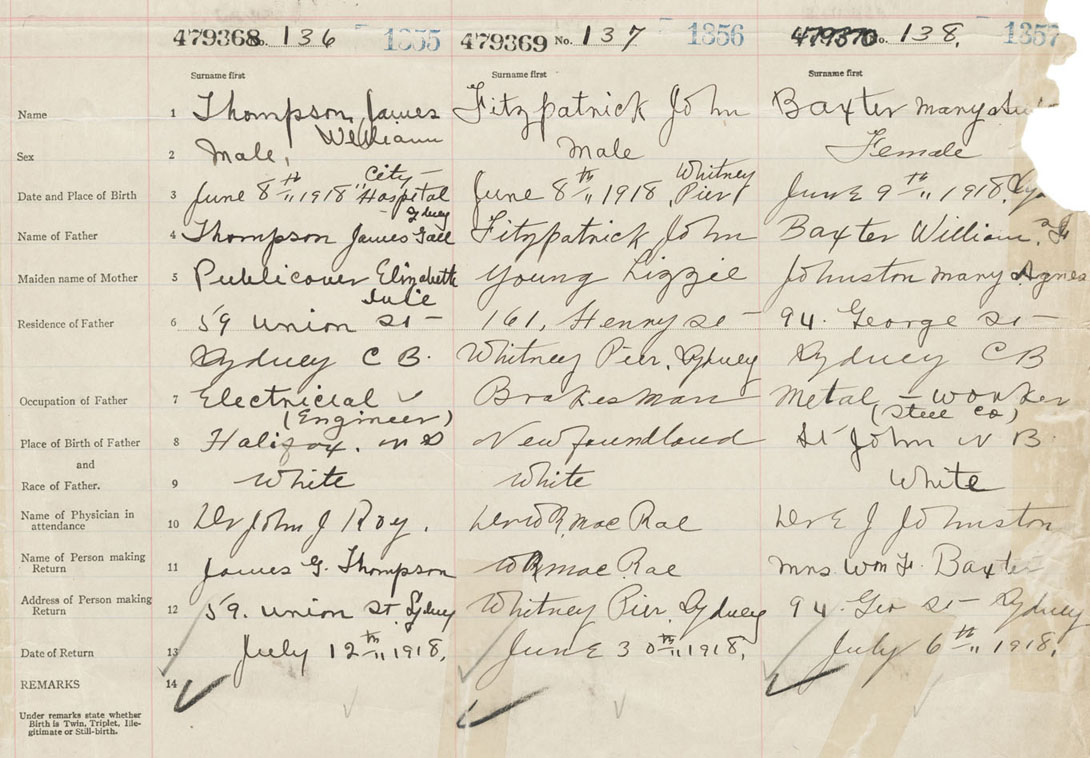 479368 No. 136 1355 479369 No. 137 1356 479370 No. 138, 1357
Surname first Surname first Surname first
Name 1 Thompson James Fitzpatrick John Baxter Mary
William
Sex 2 Male, Male Female
City - Whitney
Date and Place of Birth 3 June 8th 1918 Hospital June 8th 1918, Pier June 9th 1918,
- Sydney
Name of Father 4 Thompson James Fitzpatrick John Baxter William
Maiden name of Mother 5 Publicover Elizabeth Young Lizzie Johnston Mary Agnes
Julie
Residence of Father 6 59 Union St - 161, Henry St - 94. George St -
Sydney C B. Whitney Pier, Sydney Sydney C B
Occupation of Father 7 Electricial Brakesman Metal - Worker
(Engineer) (Steel Co)
Place of Birth of Father 8 Halifax. N S Newfoundland St John N B.
and
Race of Father. 9 White White White
Name of Physician in
attendance 10 Dr John J Roy. Dr W R. Mac Rae Dr E J Johnston
Name of Person making
Return 11 James G. Thompson W R Mac Rae Mrs. Wm F. Baxter
Address of Person making
Return 12 59. Union St. Sydney Whitney Pier, Sydney 94. Geo St - Sydney
Date of Return 13 July 12th 1918, June 30th 1918, July 6th 1918,
REMARKS 14
Under remarks state whether
Birth is Twin, Triplet, Ille-
gitimate or Still-birth.